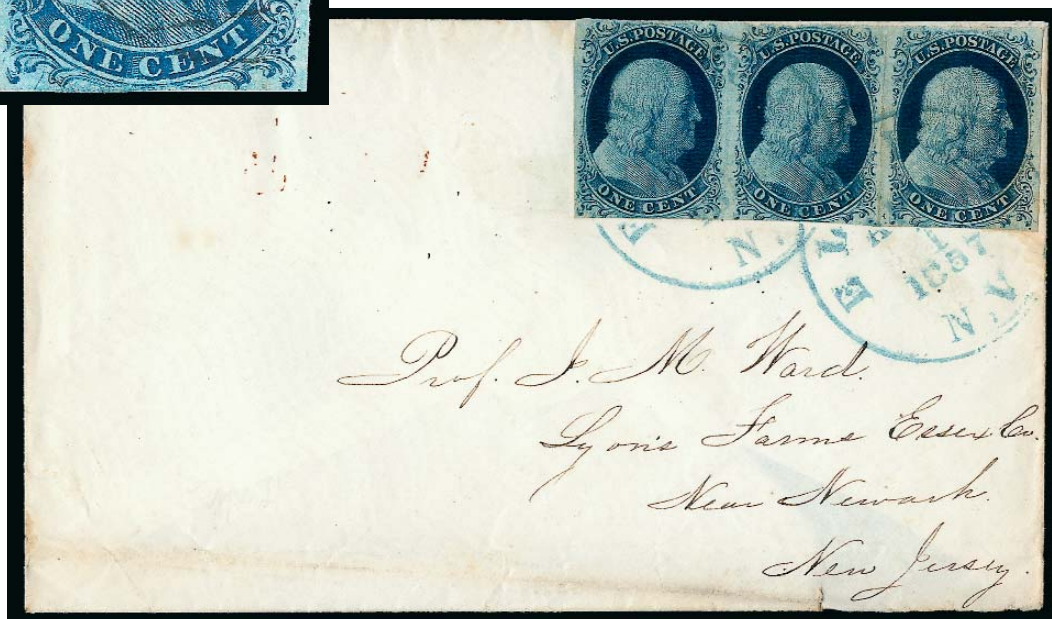 ONE CENT
U.S.POSTAGE U.S.POSTAGE U.S.POSTAGE
ONE CENT ONE CENT ONE CENT
1857
N.Y.
Prof. J. M. Ward.
Lyons Farms Essex Co.
Near Newark.
New Jersey.